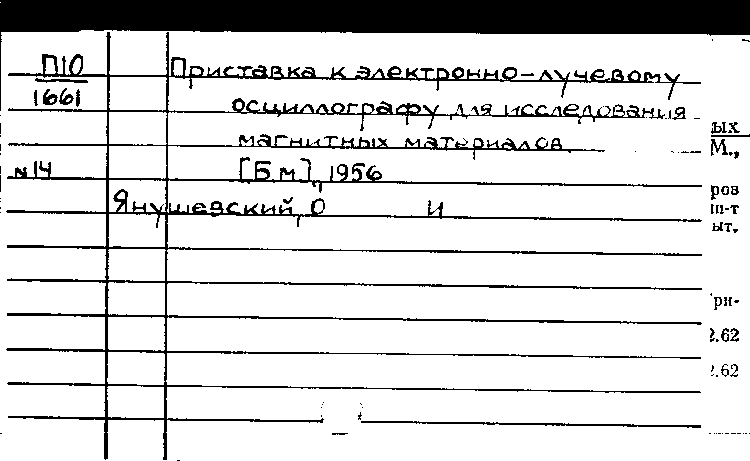 П10 Приставка к электронно-лучевому
1661 осциллографу для исследования
магнитных материалов.
№14 [Б.м.], 1956
Янушевский, О И
ых
М.,
ров
ш-т
ыт.
рн-
2.62
2.62